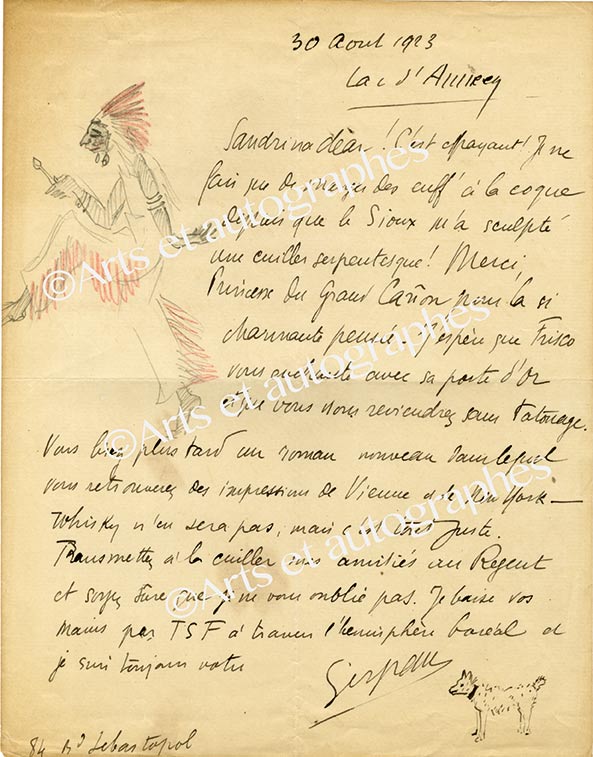 30 Aout 1923
Lac d'Annecy
Sandrina dear! C'est effrayant! Je ne
fais que de manger des œuf à la coque
depuis que le Sioux m'a sculpté
une cuiller serpentesque! Merci,
Princesse du Grand Cañon pour la si
charmante pensée. J'espère que Frisco
vous enchante avec sa porte d'Or
et que vous nous reviendrez sans tatouage.
Vous lirez plus tard un roman nouveau dans lequel
vous retrouverez des impressions de Vienne et de New York —
Whisky n'en sera pas, mais c'est tout juste.
Transmettez à la cuiller mes amitiés au Regent
et soyez sure que je ne vous oublie pas. Je baise vos
mains par TSF à travers l'hemisphère boréal et
je suis toujours votre
84 Bd Sebastopol
©Arts et autographes
©Arts et autographes
©Arts et autographes
©Arts et autographes